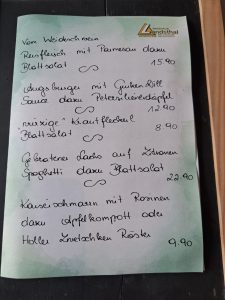 Landsthal
Vom Weideschwein
Reisfleisch mit Parmesan dazu
Blattsalat 15.90
Augsburger mit Gurken Dill
Sauce dazu Petersilerdäpfel
12.90
"würzige" Krautfleckerl
Blattsalat 8.90
Gebratener Lachs auf Zitronen
Spaghetti dazu Blattsalat
22.90
Kaiserschmarrn mit Rosinen
dazu Apfelkompott oder
Holler Zwetschken Röster
9.90